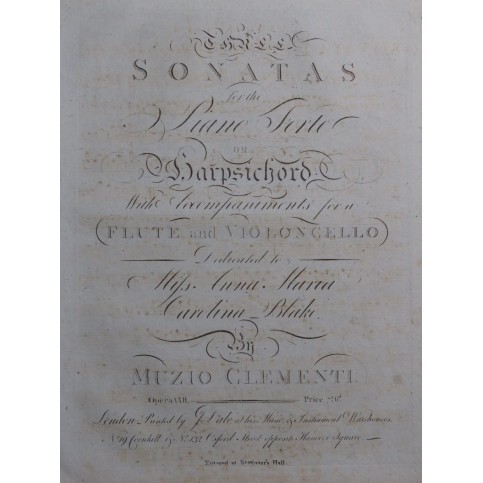 THREE
SONATAS
for the
Piano Forte
OR
Harpsichord
With Accompaniments for a
FLUTE and VIOLONCELLO
Dedicated to
Miss Anna Maria
Carolina Blake.
By
MUZIO CLEMENTI.
Opera XXII. Price 7s/6d
London Printed by J. Dale at his Music & Instrument Warehouses
No. 19 Cornhill & No. 132 Oxford Street opposite Hanover Square
Entered at Stationer's Hall.